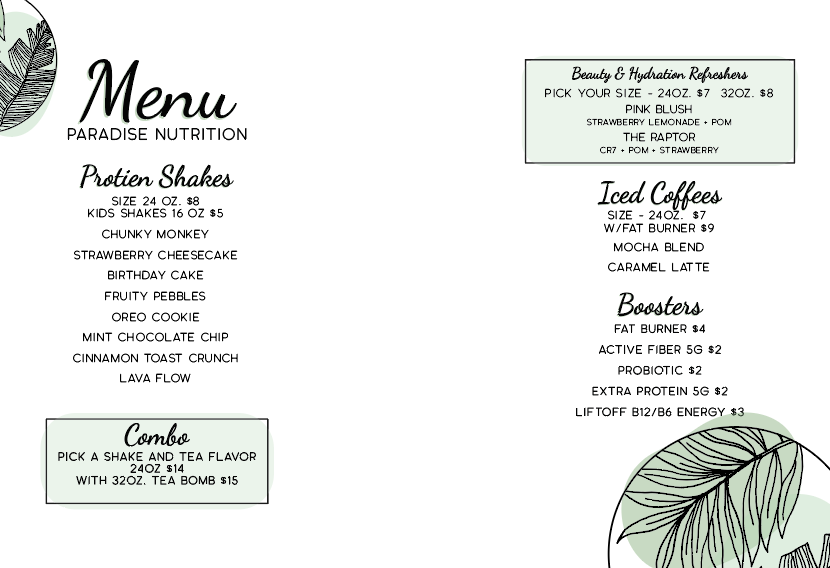 Menu
PARADISE NUTRITION
Protien Shakes
SIZE 24 OZ. $8
KIDS SHAKES 16 OZ $5
CHUNKY MONKEY
STRAWBERRY CHEESECAKE
BIRTHDAY CAKE
FRUITY PEBBLES
OREO COOKIE
MINT CHOCOLATE CHIP
CINNAMON TOAST CRUNCH
LAVA FLOW
Combo
PICK A SHAKE AND TEA FLAVOR
24OZ $14
WITH 32OZ. TEA BOMB $15
Beauty & Hydration Refreshers
PICK YOUR SIZE - 24OZ. $7 32OZ. $8
PINK BLUSH
STRAWBERRY LEMONADE + POM
THE RAPTOR
CR7 + POM + STRAWBERRY
Iced Coffees
SIZE - 24OZ. $7
W/FAT BURNER $9
MOCHA BLEND
CARAMEL LATTE
Boosters
FAT BURNER $4
ACTIVE FIBER 5G $2
PROBIOTIC $2
EXTRA PROTEIN 5G $2
LIFTOFF B12/B6 ENERGY $3